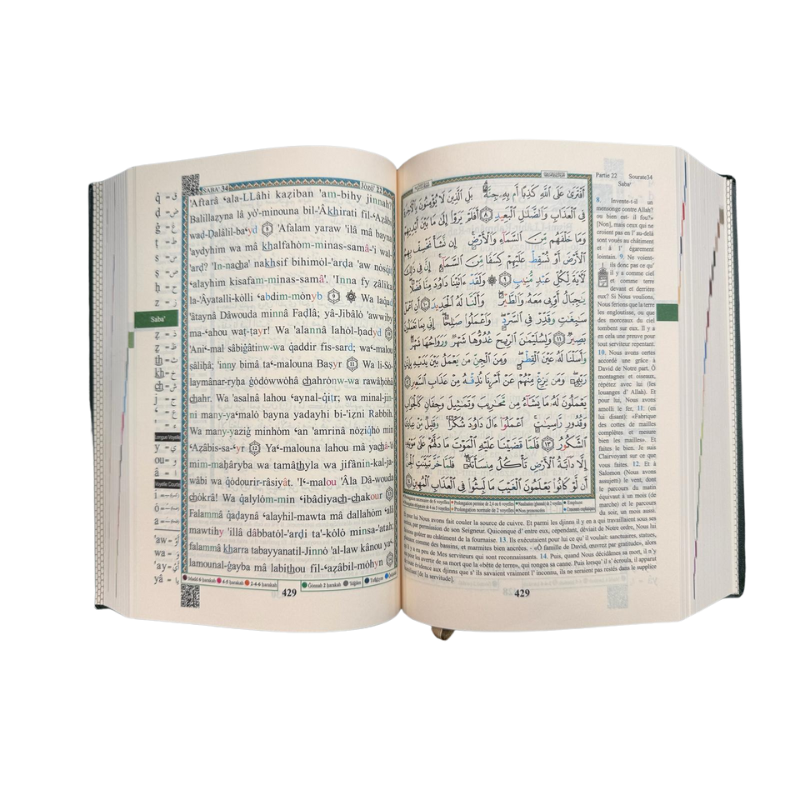 SABA' 34
'Aftarâ ʻala-LLâhi kaziban 'am-bihy jinnah
Balillazyna lâ yó'-minouna bil-'Âkhirati fil-ʻAzâbi
'Afalam yaraw 'ilâ mâ bayna
'aydyhim wa mâ khalfahóm-minas-samâ-'i wal-
'ard? 'In-nacha' nakhsif bihimól-'arḍa 'aw nósqiṭ
ʻalayhim kisafam-minas-samâ'. 'Inna fy zâlika
la-'Âyatalli-kólli ʻabdim-mónyb
Wa laqad
'âtaynâ Dâwouda minnâ Faḍlâ; yâ-Jibâló 'awwiby
ma-ʻahou waṭ-ṭayr! Wa 'alannâ lahól-ḥadyd
'Aniʻ-mal sâbiġâtinw-wa qaddir fis-sard; waʻ-malou
sâliḥâ; 'inny bimâ taʻ-malouna Baṣyr
Wa li-Só-
laymânar-ryḥa ġódówwóhâ chahrónw-wa rawâḥóhâ
chahr. Wa 'asalnâ lahou ʻaynal-qiṭr; wa minal-Jin-
ni many-yaʻ-maló bayna yadayhi bi-'izni Rabbih.
Wa many-yaziġ minhóm ʻan 'amrinâ nóziqhó min
ʻAzâbis-saʻyr
Yaʻ-malouna lahou mâ yachâ-'ó
mim-maḥâryba wa tamâthyla wa jifânin-kal-ja-
wâbi wa qódourir-râsiyât. 'Iʻ-malou 'Âla Dâ-wouda
chókrâ! Wa qalylóm-min ʻibâdiyach-chakour
Falammâ qaḍaynâ ʻalayhil-mawta mâ dallahóm ʻalâ
mawtihy 'illâ dâbbatól-'arḍi ta'-kóló minsa-'atah.
falammâ kharra tabayyanatil-Jinnó 'al-law kânou yaʻ-
lamounal-ġayba mâ labithou fil-ʻazâbil-móhyn
429
'Saba'
أَفْتَرَىٰ عَلَى ٱللَّهِ كَذِبًا أَم بِهِۦ جِنَّةٌۢ ۗ بَلِ ٱلَّذِينَ لَا يُؤْمِنُونَ بِٱلْأَخِرَةِ
فِى ٱلْعَذَابِ وَٱلضَّلَـٰلِ ٱلْبَعِيدِ ٨ أَفَلَمْ يَرَوْا۟ إِلَىٰ مَا بَيْنَ أَيْدِيهِمْ
وَمَا خَلْفَهُم مِّنَ ٱلسَّمَآءِ وَٱلْأَرْضِ ۚ إِن نَّشَأْ نَخْسِفْ بِهِمُ
ٱلْأَرْضَ أَوْ نُسْقِطْ عَلَيْهِمْ كِسَفًا مِّنَ ٱلسَّمَآءِ ۚ إِنَّ فِى ذَٰلِكَ
لَـَٔايَةً لِّكُلِّ عَبْدٍ مُّنِيبٍ ٩ ۞ وَلَقَدْ ءَاتَيْنَا دَاوُۥدَ مِنَّا فَضْلًا ۖ
يَـٰجِبَالُ أَوِّبِى مَعَهُۥ وَٱلطَّيْرَ ۖ وَأَلَنَّا لَهُ ٱلْحَدِيدَ ١٠ أَنِ ٱعْمَلْ
سَـٰبِغَـٰتٍ وَقَدِّرْ فِى ٱلسَّرْدِ ۖ وَٱعْمَلُوا۟ صَـٰلِحًا ۖ إِنِّى بِمَا تَعْمَلُونَ
بَصِيرٌ ١١ وَلِسُلَيْمَـٰنَ ٱلرِّيحَ غُدُوُّهَا شَهْرٌ وَرَوَاحُهَا شَهْرٌ ۖ
وَأَسَلْنَا لَهُۥ عَيْنَ ٱلْقِطْرِ ۖ وَمِنَ ٱلْجِنِّ مَن يَعْمَلُ بَيْنَ يَدَيْهِ بِإِذْنِ
رَبِّهِۦ ۖ وَمَن يَزِغْ مِنْهُمْ عَنْ أَمْرِنَا نُذِقْهُ مِنْ عَذَابِ ٱلسَّعِيرِ ١٢
يَعْمَلُونَ لَهُۥ مَا يَشَآءُ مِن مَّحَـٰرِيبَ وَتَمَـٰثِيلَ وَجِفَانٍ كَٱلْجَوَابِ
وَقُدُورٍ رَّاسِيَـٰتٍ ۚ ٱعْمَلُوٓا۟ ءَالَ دَاوُۥدَ شُكْرًا ۚ وَقَلِيلٌ مِّنْ عِبَادِىَ
ٱلشَّكُورُ ١٣ فَلَمَّا قَضَيْنَا عَلَيْهِ ٱلْمَوْتَ مَا دَلَّهُمْ عَلَىٰ مَوْتِهِۦٓ
إِلَّا دَآبَّةُ ٱلْأَرْضِ تَأْكُلُ مِنسَأَتَهُۥ ۖ فَلَمَّا خَرَّ تَبَيَّنَتِ ٱلْجِنُّ
أَن لَّوْ كَانُوا۟ يَعْلَمُونَ ٱلْغَيْبَ مَا لَبِثُوا۟ فِى ٱلْعَذَابِ ٱلْمُهِينِ ١٤
Partie 22 Sourate34
Saba'
8. Invente-t-il un
mensonge contre Allah?
ou bien est-il fou?»
[Non], mais ceux qui ne
croient pas en l' au-delà
sont voués au châtiment
et à l' égarement
lointain. 9. Ne voient-
ils donc pas ce qu'
il y a comme ciel
et comme terre
devant et derrière
eux? Si Nous voulions,
Nous ferions que la terre
les engloutisse, ou que
des morceaux du ciel
tombent sur eux. Il y a
en cela une preuve pour
tout serviteur repentant.
10. Nous avons certes
accordé une grâce à
David de Notre part. Ô
montagnes et oiseaux,
répétez avec lui (les
louanges d' Allah). Et
pour lui, Nous avons
amolli le fer, 11. (en
lui disant): «Fabrique
des cottes de mailles
complètes, et mesure
bien les mailles». Et
faites le bien. Je suis
Clairvoyant sur ce que
vous faites. 12. Et à
Salomon (Nous avons
assujetti) le vent, dont
le parcours du matin
équivaut à un mois (de
marche) et le parcours
du soir, un mois aussi.
lui Nous avons fait couler la source de cuivre. Et parmi les djinns il y en a qui travaillaient sous ses
permission de son Seigneur. Quiconque d' entre eux, cependant, déviait de Notre ordre, Nous lui
au châtiment de la fournaise. 13. Ils exécutaient pour lui ce qu' il voulait: sanctuaires, statues,
comme des bassins, et marmites bien ancrées. - «Ô famille de David, œuvrez par gratitude», alors
a eu peu de Mes serviteurs qui sont reconnaissants. 14. Puis, quand Nous décidâmes sa mort, il n'y
que la «bête de terre», qui rongea sa canne. Puis lorsqu' il s'écroula, il apparut
évidence aux djinns que s' ils savaient vraiment l' inconnu, ils ne seraient pas restés dans le supplice
[de la servitude].
429